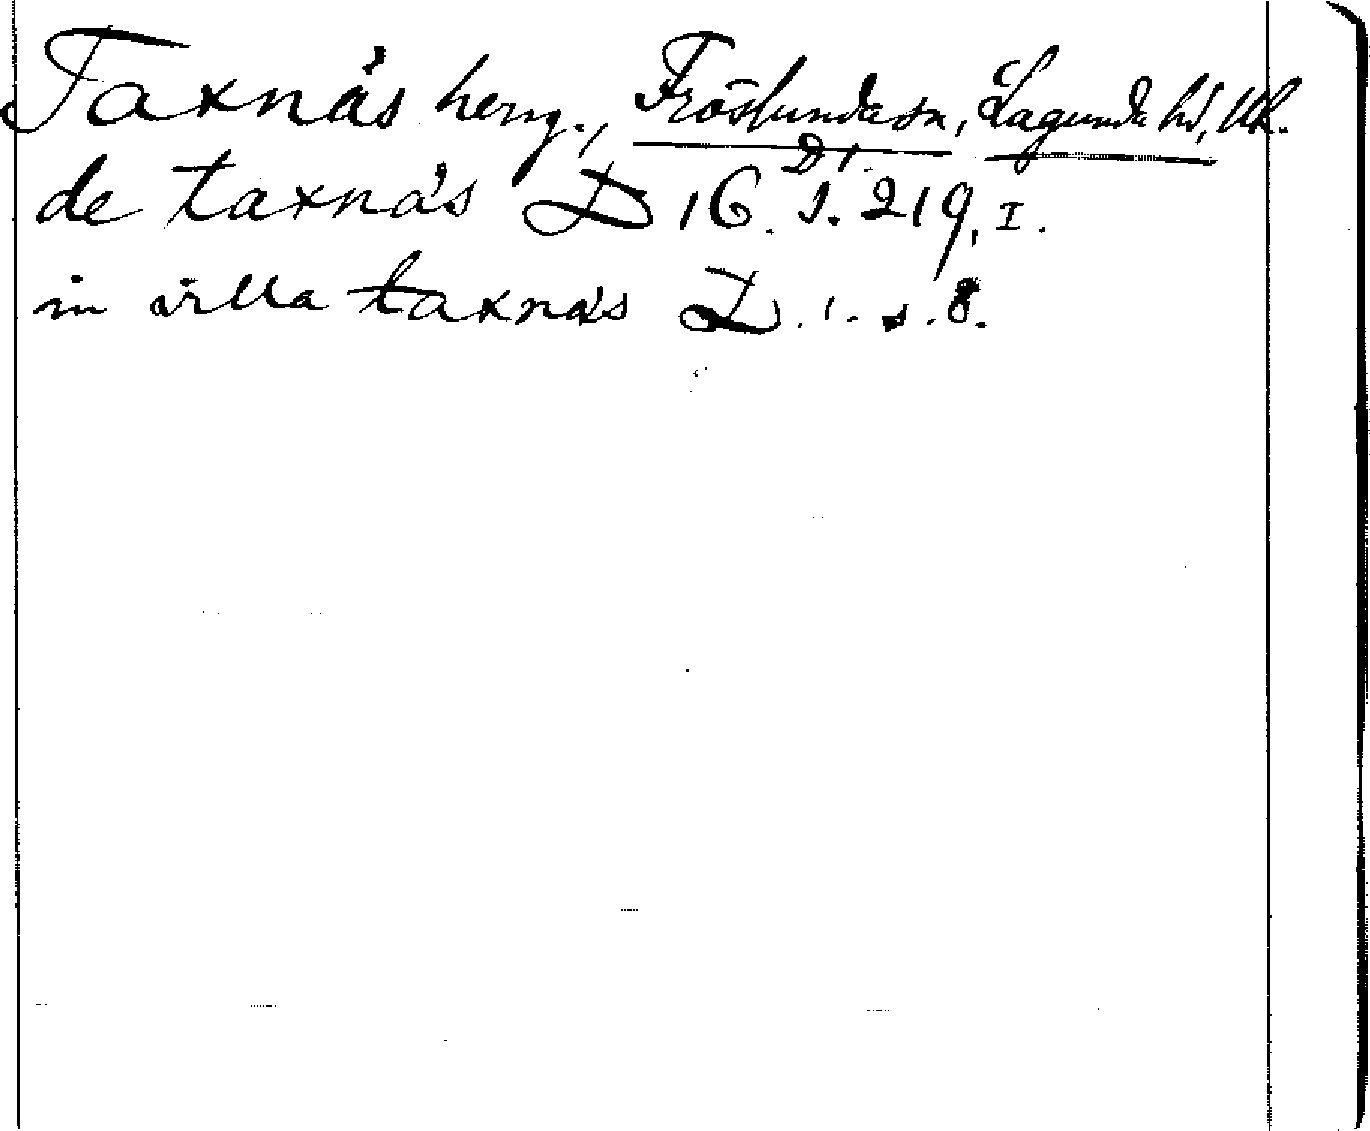 Taxnäs herrg., Fröslunda sn, Lagunda hd, Uh.
D1.
de taxnäs D 16. s. 219, I.
in villa taxnäs D. 1. s. 8.